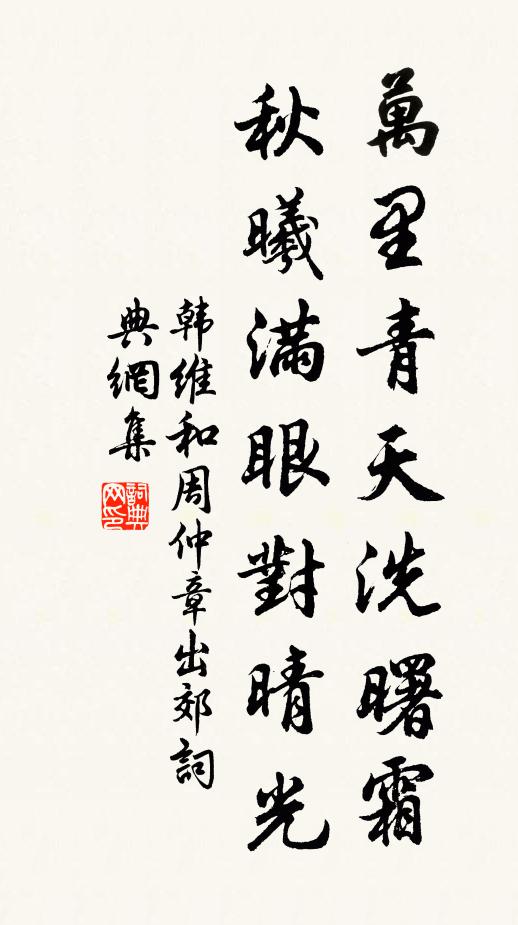 萬里青天洗曙霜
秋曦滿眼對晴光
韩維和周仲章出郊詞
典網集
詞典网印